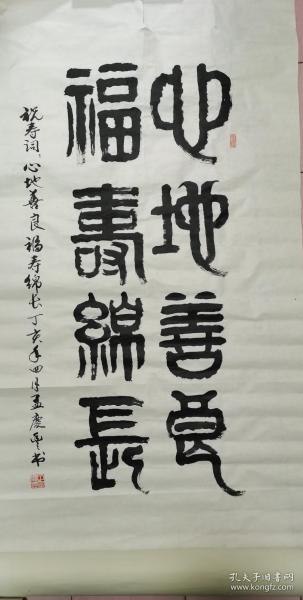 心地善良
福寿綿長
祝寿词：心地善良福寿绵长丁亥年四月孟庆 书
孔夫子旧书网
www.kongfz.com